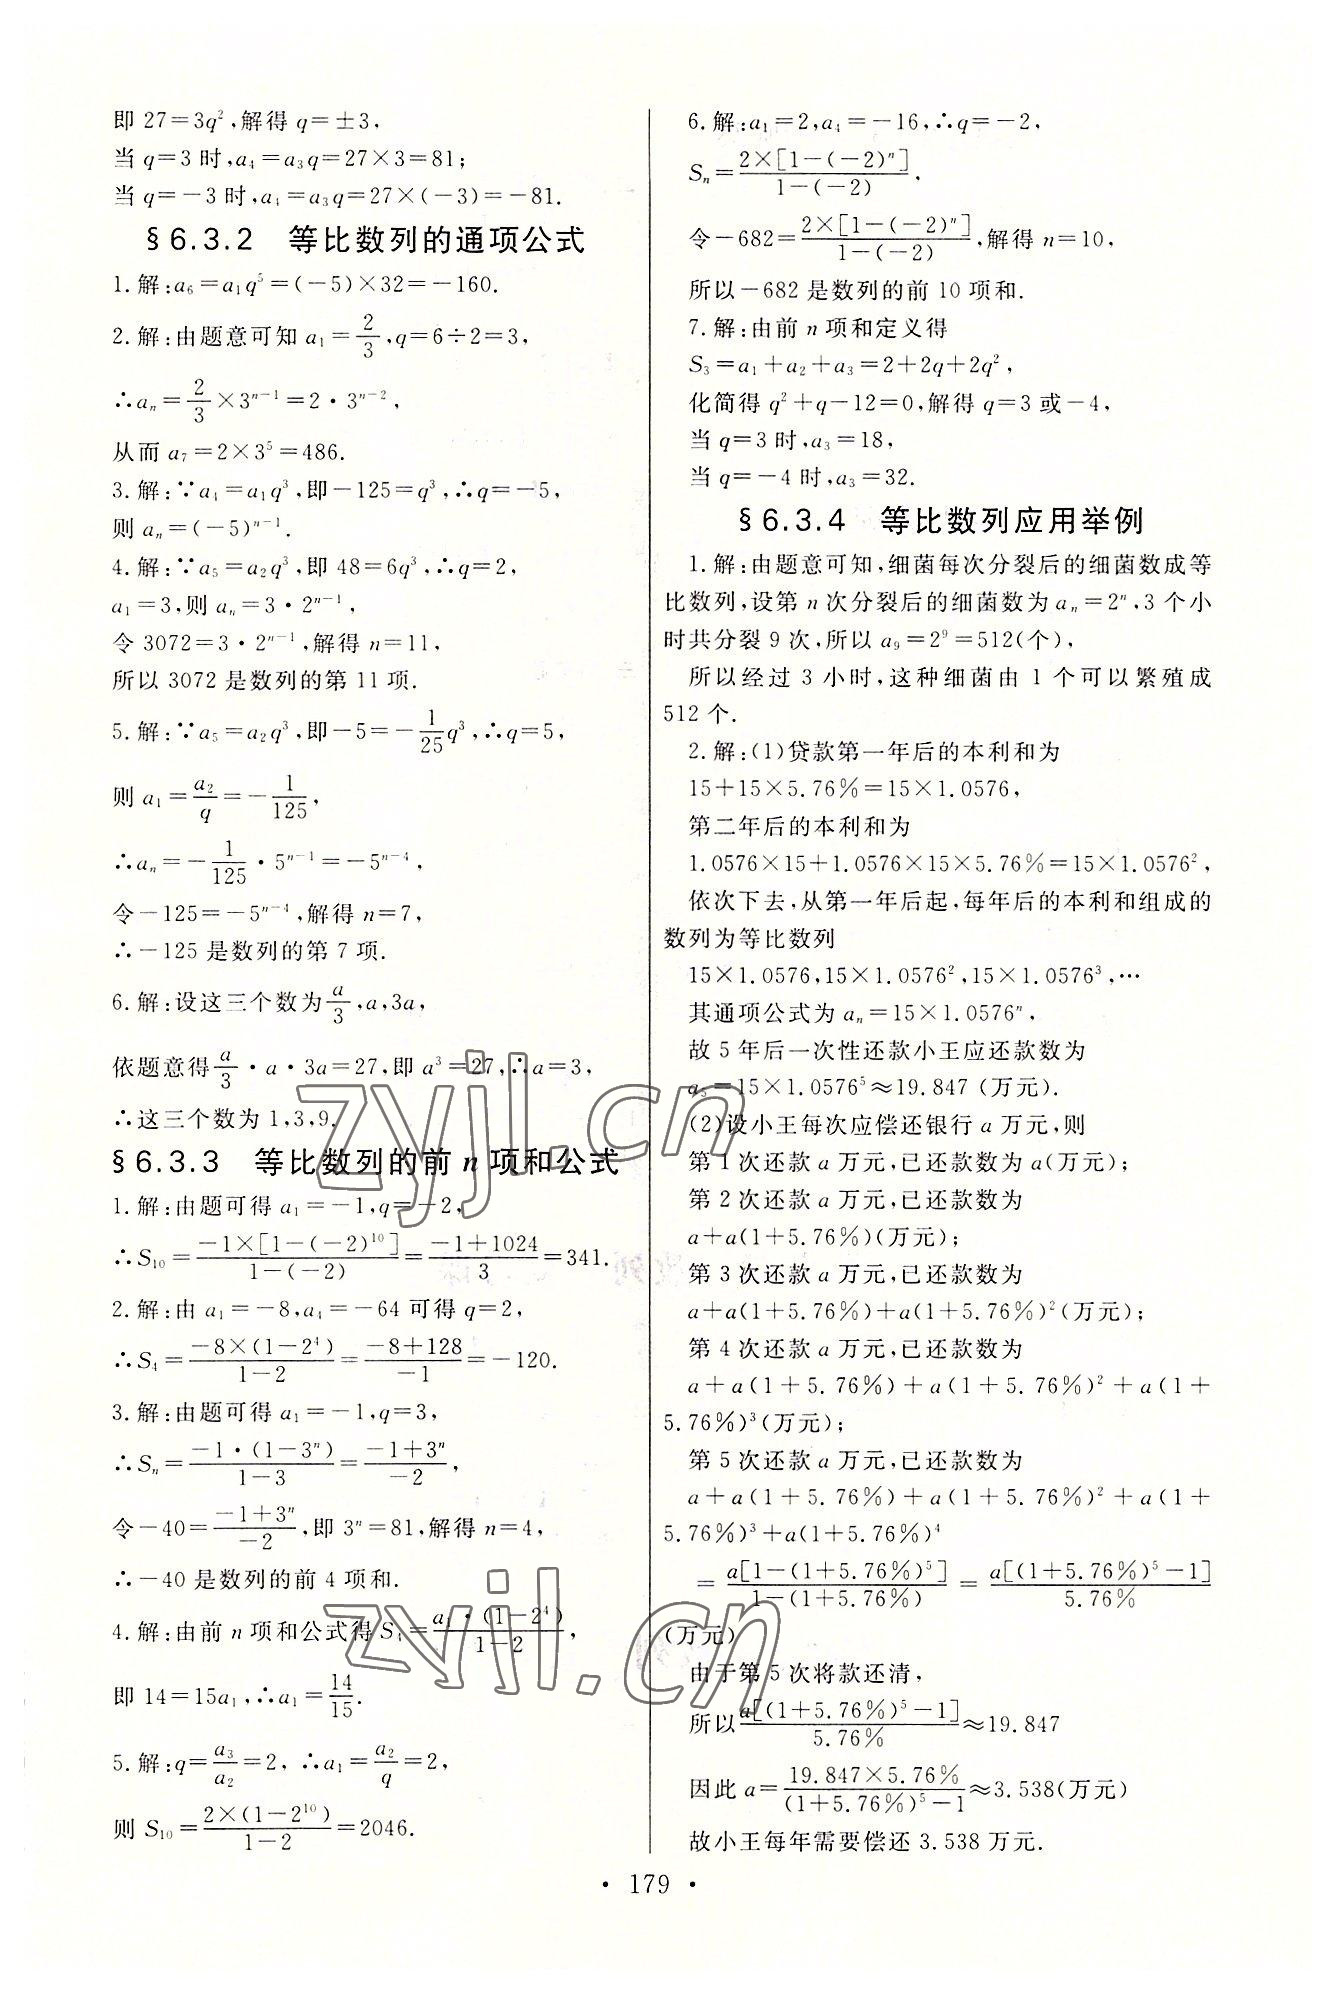 即 27=3q²,解得 q=±3,
当 q=3 时,a₄=a₃q=27×3=81;
当 q=-3 时,a₄=a₃q=27×(-3)=-81.
§6.3.2 等比数列的通项公式
1.解:a₆=a₁q⁵=(-5)×32=-160.
2.解:由题意可知 a₁=2/3,q=6÷2=3,
∴aₙ=2/3×3ⁿ⁻¹=2·3ⁿ⁻²,
从而 a₇=2×3⁵=486.
3.解:∵a₄=a₁q³,即-125=q³,∴q=-5,
则 aₙ=(-5)ⁿ⁻¹.
4.解:∵a₅=a₂q³,即 48=6q³,∴q=2,
a₁=3,则 aₙ=3·2ⁿ⁻¹,
令 3072=3·2ⁿ⁻¹,解得 n=11,
所以 3072 是数列的第 11 项.
5.解:∵a₅=a₂q³,即-5=-1/25q³,∴q=5,
则 a₁=a₂/q=-1/125,
∴aₙ=-1/125·5ⁿ⁻¹=-5ⁿ⁻⁴,
令-125=-5ⁿ⁻⁴,解得 n=7,
∴-125 是数列的第 7 项.
6.解:设这三个数为a/3,a,3a,
依题意得a/3·a·3a=27,即 a³=27,∴a=3,
∴这三个数为 1,3,9.
§6.3.3 等比数列的前 n 项和公式
1.解:由题可得 a₁=-1,q=-2,
∴S₁₀=-1×[1-(-2)¹⁰]/1-(-2)=-1+1024/3=341.
2.解:由 a₁=-8,a₄=-64 可得 q=2,
∴S₄=-8×(1-2⁴)/1-2=-8+128/-1=-120.
3.解:由题可得 a₁=-1,q=3,
∴Sₙ=-1·(1-3ⁿ)/1-3=-1+3ⁿ/-2,
令-40=-1+3ⁿ/-2,即 3ⁿ=81,解得 n=4,
∴-40 是数列的前 4 项和.
4.解:由前 n 项和公式得 S₄=a₁·(1-2⁴)/1-2,
即 14=15a₁,∴a₁=14/15.
5.解:q=a₃/a₂=2, ∴a₁=a₂/q=2,
则 S₁₀=2×(1-2¹⁰)/1-2=2046.
6.解:a₁=2,a₄=-16,∴q=-2,
Sₙ=2×[1-(-2)ⁿ]/1-(-2).
令-682=2×[1-(-2)ⁿ]/1-(-2),解得 n=10,
所以-682 是数列的前 10 项和.
7.解:由前 n 项和定义得
S₃=a₁+a₂+a₃=2+2q+2q²,
化简得 q²+q-12=0,解得 q=3 或-4,
当 q=3 时,a₃=18,
当 q=-4 时,a₃=32.
§6.3.4 等比数列应用举例
1.解:由题意可知,细菌每次分裂后的细菌数成等
比数列,设第 n 次分裂后的细菌数为 aₙ=2ⁿ,3 个小
时共分裂 9 次,所以 a₉=2⁹=512(个),
所以经过 3 小时,这种细菌由 1 个可以繁殖成
512 个.
2.解:(1)贷款第一年后的本利和为
15+15×5.76%=15×1.0576,
第二年后的本利和为
1.0576×15+1.0576×15×5.76%=15×1.0576²,
依次下去,从第一年后起,每年后的本利和组成的
数列为等比数列
15×1.0576,15×1.0576²,15×1.0576³,…
其通项公式为 aₙ=15×1.0576ⁿ,
故 5 年后一次性还款小王应还款数为
a₅=15×1.0576⁵≈19.847 (万元).
(2)设小王每次应偿还银行 a 万元,则
第 1 次还款 a 万元,已还款数为 a(万元);
第 2 次还款 a 万元,已还款数为
a+a(1+5.76%)(万元);
第 3 次还款 a 万元,已还款数为
a+a(1+5.76%)+a(1+5.76%)²(万元);
第 4 次还款 a 万元,已还款数为
a+a(1+5.76%)+a(1+5.76%)²+a(1+
5.76%)³(万元);
第 5 次还款 a 万元,已还款数为
a+a(1+5.76%)+a(1+5.76%)²+a(1+
5.76%)³+a(1+5.76%)⁴
=a[1-(1+5.76%)⁵]/1-(1+5.76%)=a[(1+5.76%)⁵-1]/5.76%
(万元)
由于第 5 次将款还清,
所以a[(1+5.76%)⁵-1]/5.76%≈19.847
因此 a=19.847×5.76%/(1+5.76%)⁵-1≈3.538(万元)
故小王每年需要偿还 3.538 万元.
· 179 ·
zyjl.cn
zyjl.cn